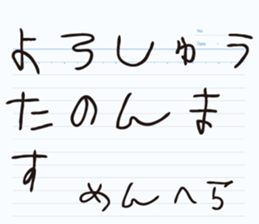 No.
Date
よろしゅう
たのんま
す めんへら